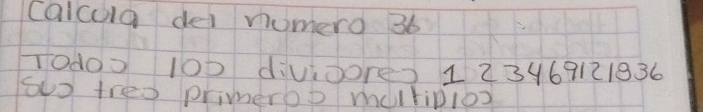 calcula del numero 36
Todos los divisores 1 2 3 4 6 9 12 18 36
sus tres primeros multiplos